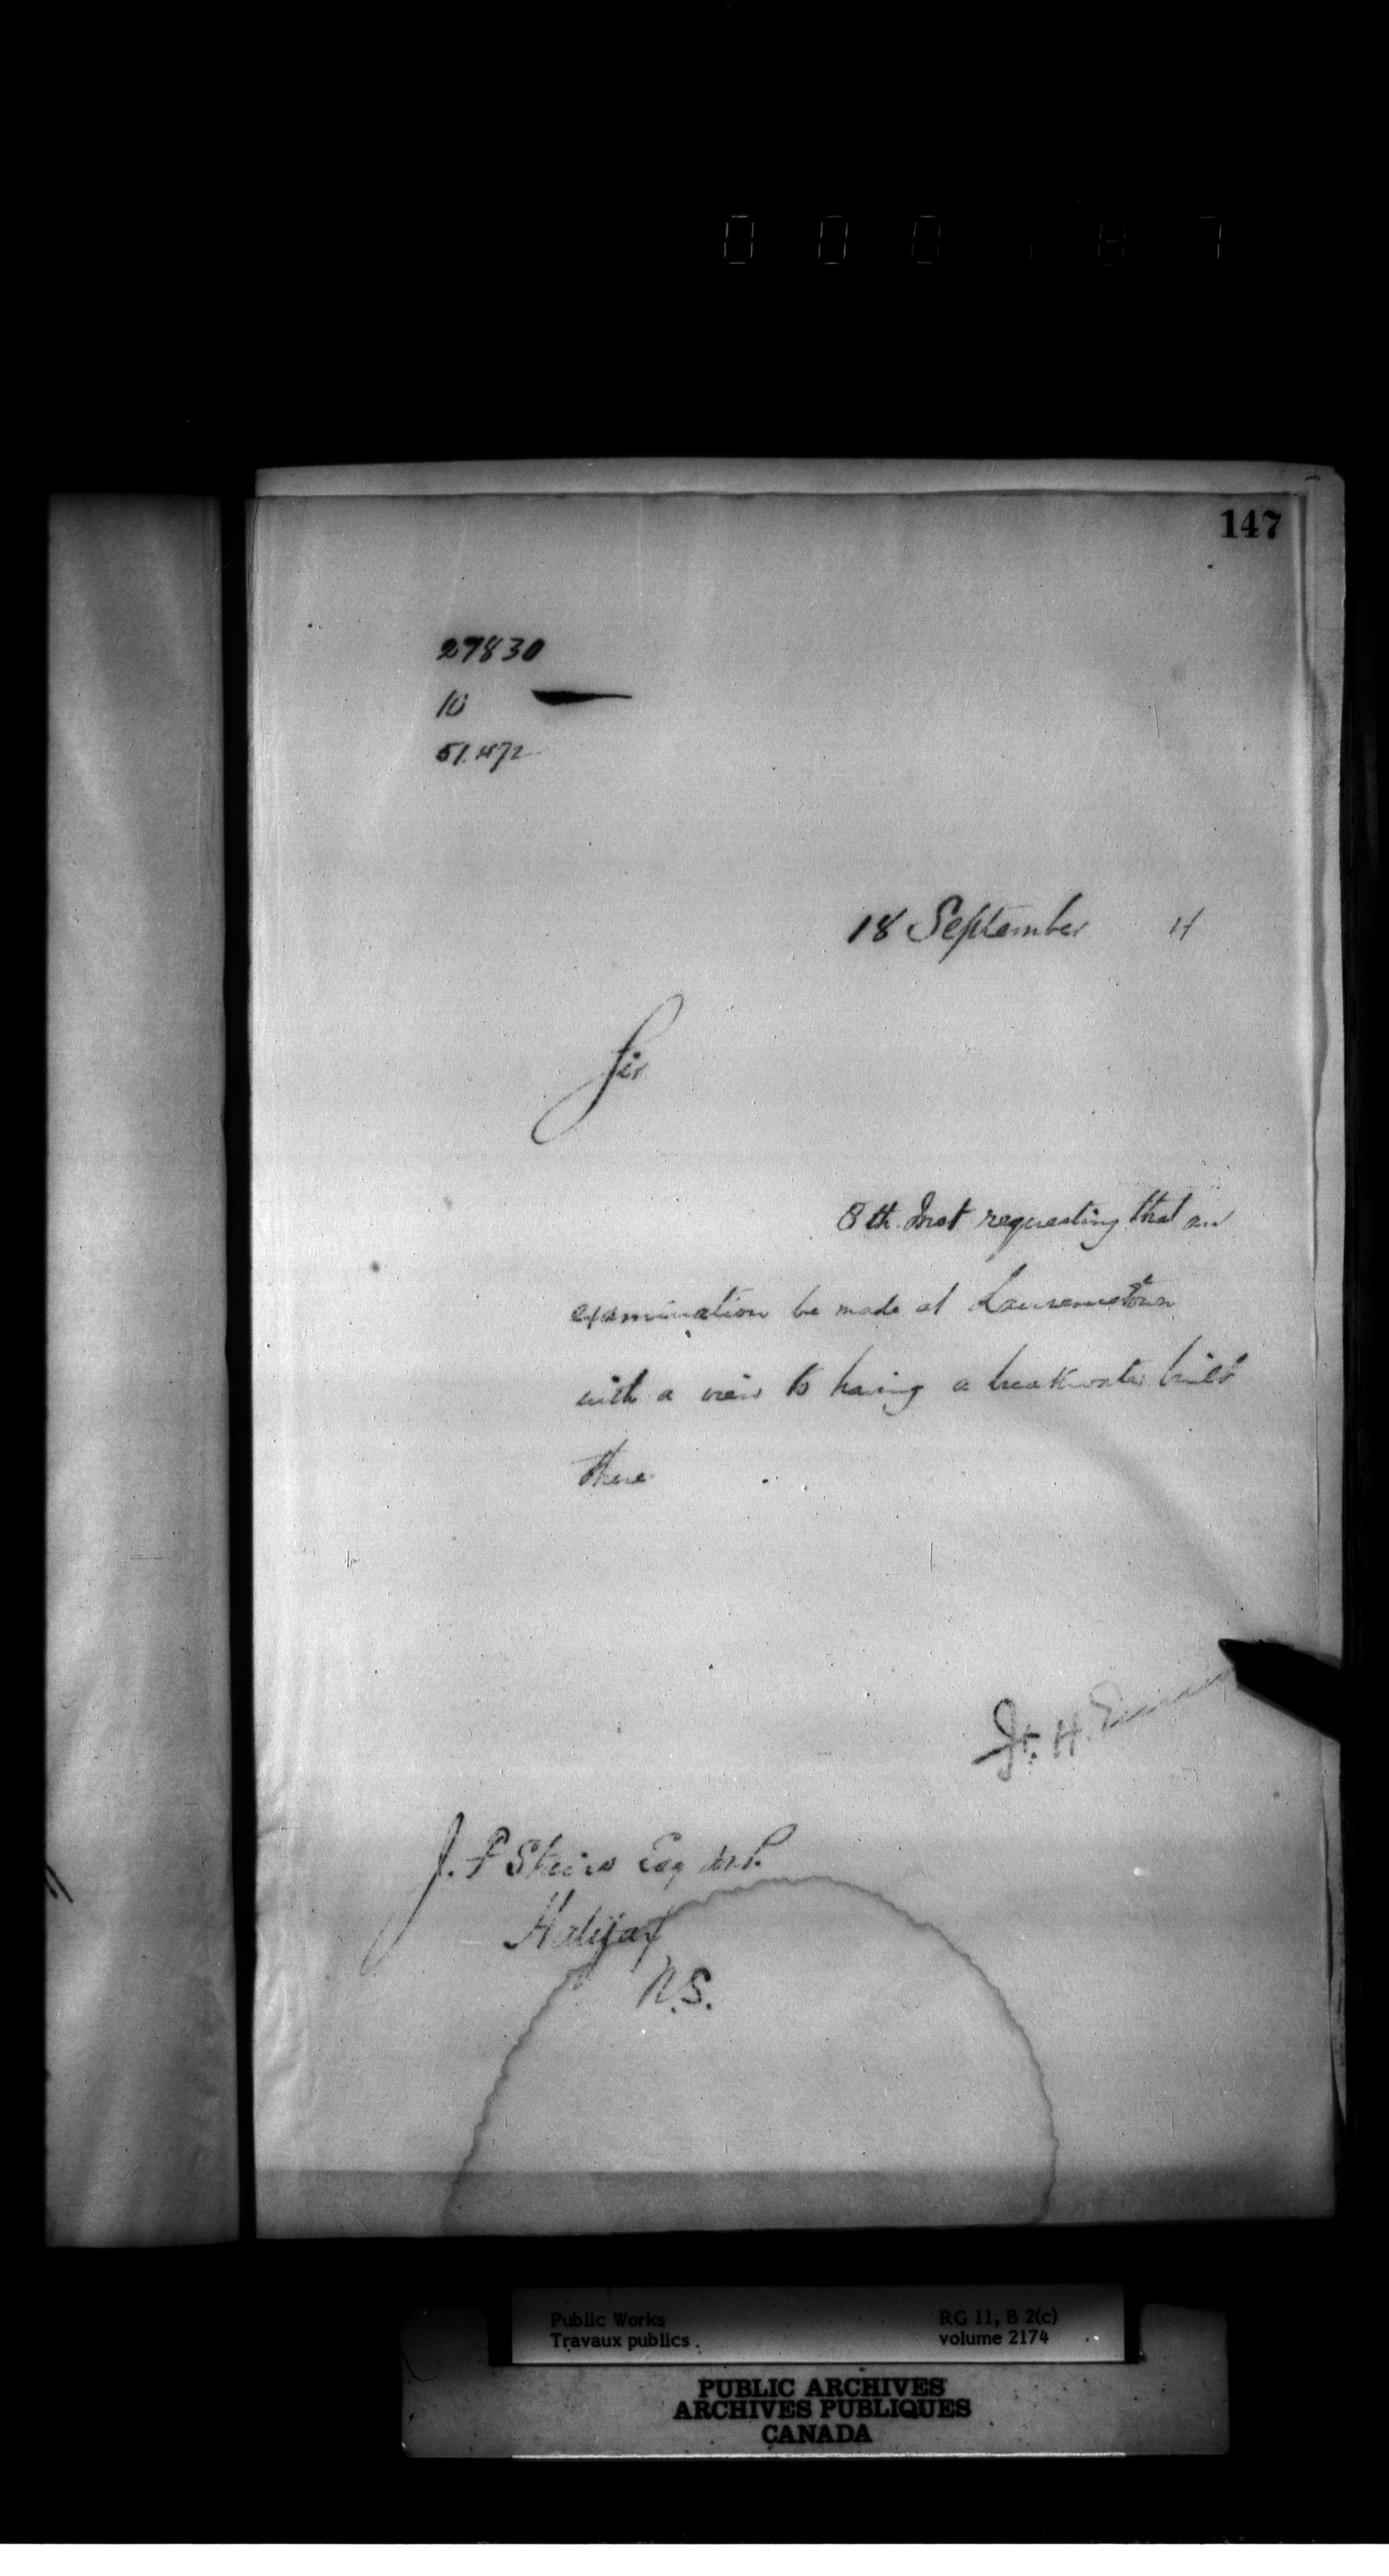 000187
147
27830
10
51.472
18 September 4
Sir
8th Inst requesting that an
examination be made at Lawrencetown
with a view to having a breakwater built
there
H.
J. F Stairs Esq M.P.
Halifax
N.S.
Public Works RG 11, B 2(c)
Travaux publics volume 2174
PUBLIC ARCHIVES
ARCHIVES PUBLIQUES
CANADA